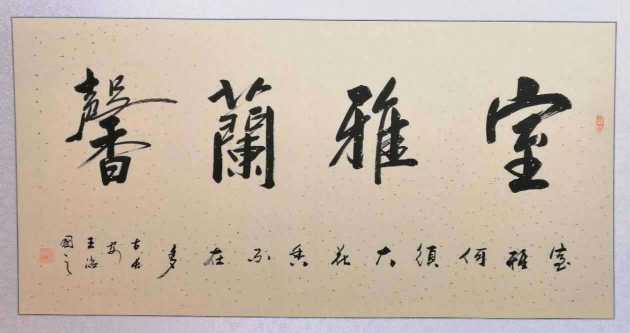 室雅蘭馨
室雅何須大花香不在多
古長
安
王治
國